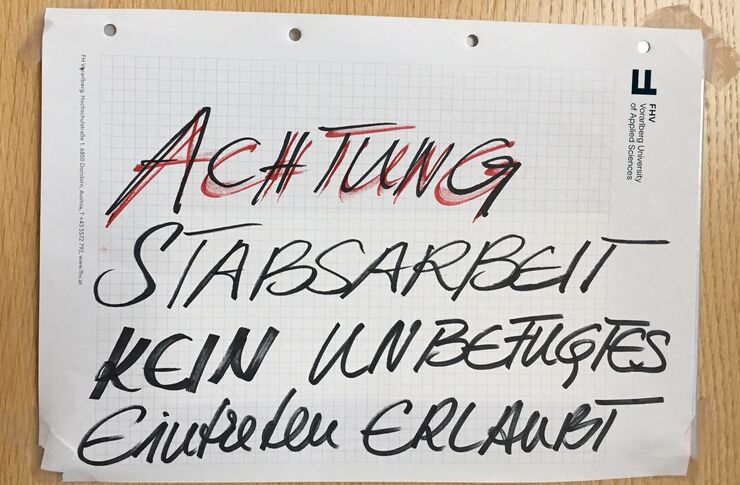 FHV
Vorarlberg University
of Applied Sciences
ACHTUNG
STABSARBEIT
KEIN UNBEFUGTES
Eintreten ERLAUBT
FH Vorarlberg, Hochschulstraße 1, 6850 Dornbirn, Austria, T +43 5572 792, www.fhv.at